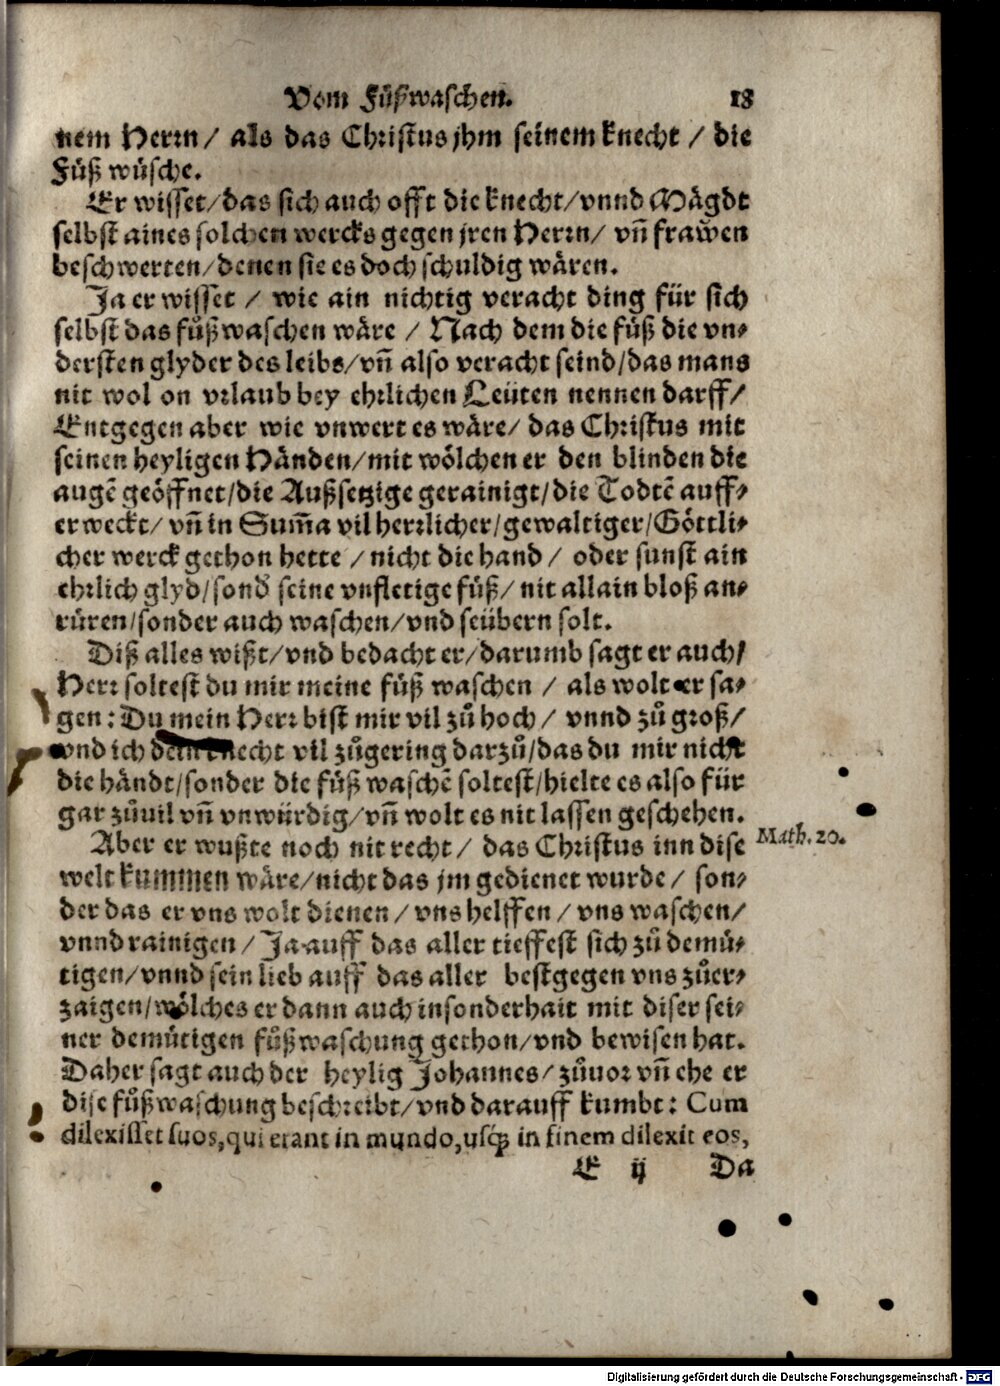 Vom Füßwaschen. 18
nem Herrn / als das Christus jhm seinem knecht / die
Füß wüsche.
Er wisset / das sich auch offt die knecht / vnnd Mägdt
selbst aines solchen wercks gegen jren Herrn / vñ frawen
beschwerten / denen sie es doch schuldig wären.
Ja er wisset / wie ain nichtig veracht ding für sich
selbst das füßwaschen wäre / Nach dem die füß die vn-
dersten glyder des leibs / vñ also veracht seind / das mans
nit wol on vrlaub bey ehrlichen Leüten nennen darff /
Entgegen aber wie vnwert es wäre / das Christus mit
seinen heyligen Händen / mit wölchen er den blinden die
augẽ geöffnet / die Außsetzige gerainigt / die Todtẽ auff-
erweckt / vñ in Sum̃a vil herrlicher / gewaltiger / Göttli-
cher werck gethon hette / nicht die hand / oder sunst ain
ehrlich glyd / sond̾ seine vnfletige füß / nit allain bloß an-
rüren / sonder auch waschen / vnd seübern solt.
Diß alles wißt / vnd bedacht er / darumb sagt er auch /
Herr soltest du mir meine füß waschen / als wolt er sa-
gen: Du mein Herr bist mir vil zů hoch / vnnd zů groß /
vnd ich dein knecht vil zůgering darzů / das du mir nicht
die händt / sonder die füß waschẽ soltest / hielte es also für
gar zůuil vñ vnwürdig / vñ wolt es nit lassen geschehen.
Aber er wußte noch nit recht / das Christus inn dise
welt kummen wäre / nicht das jm gedienet wurde / son-
der das er vns wolt dienen / vns helffen / vns waschen /
vnnd rainigen / Ja auff das aller tieffest sich zů demü-
tigen / vnnd sein lieb auff das aller best gegen vns zůer-
zaigen / wölches er dann auch insonderhait mit diser sei-
ner demütigen füßwaschung gethon / vnd bewisen hat.
Daher sagt auch der heylig Johannes / zůuor vñ ehe er
dise füßwaschung beschreibt / vnd darauff kumbt: Cum
dilexisset suos, qui erant in mundo, usq́ꝫ in finem dilexit eos,
E ij Da
Math. 20.
Digitalisierung gefördert durch die Deutsche Forschungsgemeinschaft - DFG